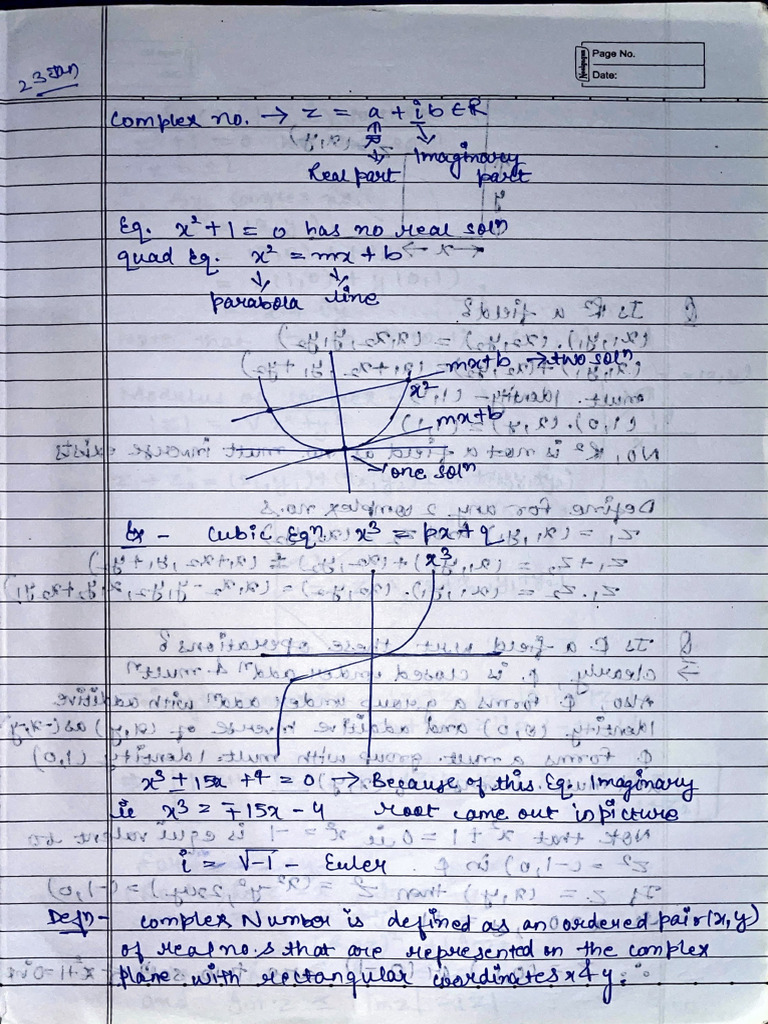 Page No.
Date:
23 Jan
Complex no. → z = a + i b ∈ R
∈R
Real part
Imaginary part
Eq. x² + 1 = 0 has no real solⁿ
quad Eq. x² = mx + b
parabola line
mx+b → two solⁿ
x²
mx+b
→ one solⁿ
Ex - Cubic Eqⁿ x³ = px + q
x³
x³ ± 15x + 4 = 0 → Because of this Eq. Imaginary
ie x³ = ∓15x - 4 root came out in picture
i = √-1 - Euler
Defn - Complex Number is defined as an ordered pair (x, y)
of real no.s that are represented on the complex
plane with rectangular coordinates x & y.